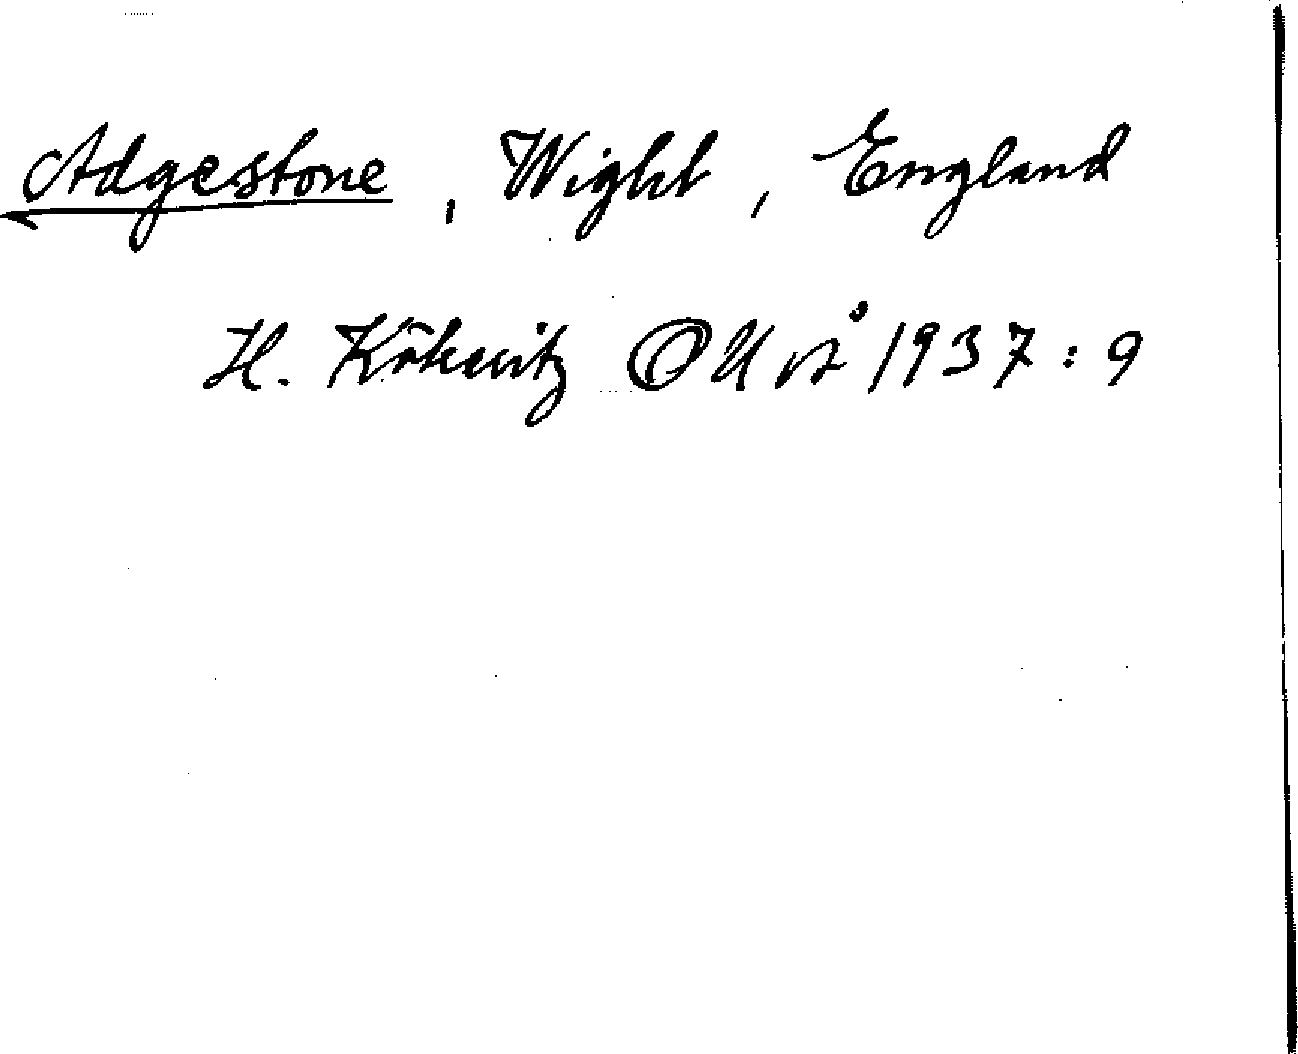 Adgestone, Wight, England
H. Kökeritz OUÅ 1937:9